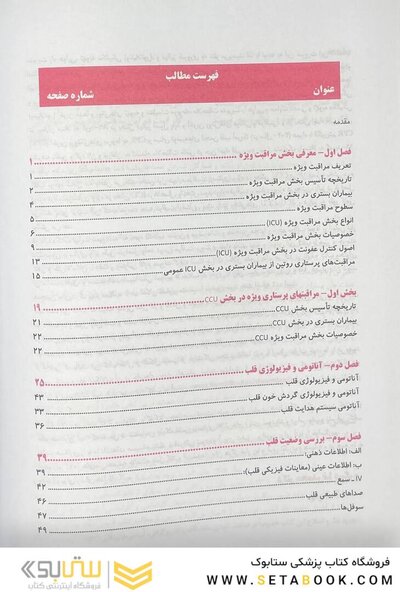 فهرست مطالب
عنوان شماره صفحه
مقدمه
فصل اول – معرفی بخش مراقبت ویژه ۱
تعریف مراقبت ویژه ۱
تاریخچه تأسیس بخش مراقبت ویژه ۲
بیماران بستری در بخش مراقبت ویژه ۴
سطوح مراقبت ویژه ۵
انواع بخش مراقبت ویژه (ICU) ۶
خصوصیات بخش مراقبت ویژه ۹
اصول کنترل عفونت در بخش مراقبت ویژه (ICU) ۱۳
مراقبت‌های پرستاری روتین از بیماران بستری در بخش ICU عمومی ۱۵
بخش اول – مراقبتهای پرستاری ویژه در بخش CCU ۱۹
تاریخچه تأسیس بخش CCU ۲۱
بیماران بستری در بخش CCU ۲۲
خصوصیات بخش مراقبت ویژه CCU ۲۲
فصل دوم – آناتومی و فیزیولوژی قلب ۲۵
آناتومی و فیزیولوژی قلب ۴۳
آناتومی و فیزیولوژی گردش خون قلب ۳۳
آناتومی سیستم هدایت قلب ۳۶
فصل سوم – بررسی وضعیت قلب ۳۹
الف: اطلاعات ذهنی:
ب: اطلاعات عینی (معاینات فیزیکی قلب): ۳۹
۱۷ ـ سمع ۴۲
صداهای طبیعی قلب ۴۶
سوفل‌ها ۴۷
۴۹
فروشگاه کتاب پزشکی ستابوک
WWW.SETABOOK.COM
ستابوک
فروشگاه اینترنتی کتاب